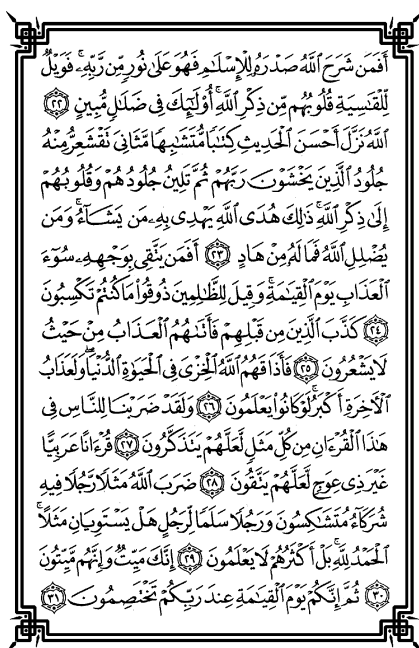 أَفَمَن شَرَحَ ٱللَّهُ صَدْرَهُۥ لِلْإِسْلَٰمِ فَهُوَ عَلَىٰ نُورٍ مِّن رَّبِّهِۦ ۚ فَوَيْلٌ
لِّلْقَٰسِيَةِ قُلُوبُهُم مِّن ذِكْرِ ٱللَّهِ ۚ أُو۟لَٰٓئِكَ فِى ضَلَٰلٍ مُّبِينٍ ٢٢
ٱللَّهُ نَزَّلَ أَحْسَنَ ٱلْحَدِيثِ كِتَٰبًا مُّتَشَٰبِهًا مَّثَانِىَ تَقْشَعِرُّ مِنْهُ
جُلُودُ ٱلَّذِينَ يَخْشَوْنَ رَبَّهُمْ ثُمَّ تَلِينُ جُلُودُهُمْ وَقُلُوبُهُمْ
إِلَىٰ ذِكْرِ ٱللَّهِ ۚ ذَٰلِكَ هُدَى ٱللَّهِ يَهْدِى بِهِۦ مَن يَشَآءُ ۚ وَمَن
يُضْلِلِ ٱللَّهُ فَمَا لَهُۥ مِنْ هَادٍ ٢٣ أَفَمَن يَتَّقِى بِوَجْهِهِۦ سُوٓءَ
ٱلْعَذَابِ يَوْمَ ٱلْقِيَٰمَةِ ۚ وَقِيلَ لِلظَّٰلِمِينَ ذُوقُوا۟ مَا كُنتُمْ تَكْسِبُونَ
٢٤ كَذَّبَ ٱلَّذِينَ مِن قَبْلِهِمْ فَأَتَىٰهُمُ ٱلْعَذَابُ مِنْ حَيْثُ
لَا يَشْعُرُونَ ٢٥ فَأَذَاقَهُمُ ٱللَّهُ ٱلْخِزْىَ فِى ٱلْحَيَوٰةِ ٱلدُّنْيَا ۖ وَلَعَذَابُ
ٱلْءَاخِرَةِ أَكْبَرُ ۚ لَوْ كَانُوا۟ يَعْلَمُونَ ٢٦ وَلَقَدْ ضَرَبْنَا لِلنَّاسِ فِى
هَٰذَا ٱلْقُرْءَانِ مِن كُلِّ مَثَلٍ لَّعَلَّهُمْ يَتَذَكَّرُونَ ٢٧ قُرْءَانًا عَرَبِيًّا
غَيْرَ ذِى عِوَجٍ لَّعَلَّهُمْ يَتَّقُونَ ٢٨ ضَرَبَ ٱللَّهُ مَثَلًا رَّجُلًا فِيهِ
شُرَكَآءُ مُتَشَٰكِسُونَ وَرَجُلًا سَلَمًا لِّرَجُلٍ هَلْ يَسْتَوِيَانِ مَثَلًا ۚ
ٱلْحَمْدُ لِلَّهِ ۚ بَلْ أَكْثَرُهُمْ لَا يَعْلَمُونَ ٢٩ إِنَّكَ مَيِّتٌ وَإِنَّهُم مَّيِّتُونَ
٣٠ ثُمَّ إِنَّكُمْ يَوْمَ ٱلْقِيَٰمَةِ عِندَ رَبِّكُمْ تَخْتَصِمُونَ ٣١